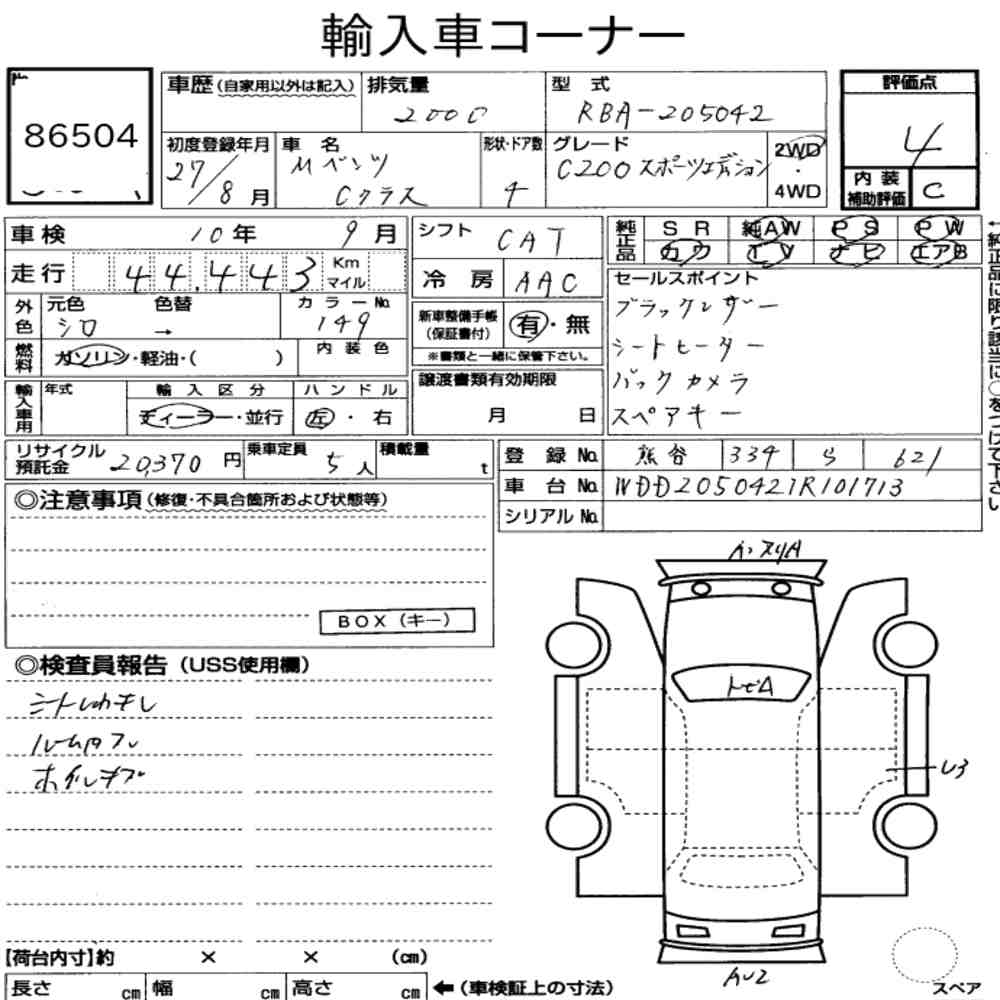 輸入車コーナー
86504
車歴(自家用以外は記入)
排気量
2000
型式
RBA-205042
評価点
4
初度登録年月
27/8月
車名
Mベンツ
Cクラス
形状・ドア数
4
グレード
C200スポーツエディション
2WD
・
4WD
内装
補助評価
C
車検 10年 9月
シフト CAT
純正品
SR 純AW PS PW
カワ TV ナビ エアB
走行 44,443 Km マイル
冷房 AAC
セールスポイント
ブラックレザー
シートヒーター
バックカメラ
スペアキー
外色
元色 色替
シロ →
カラーNo.
149
新車整備手帳
(保証書付)
有・無
※書類と一緒に保管下さい。
燃料
ガソリン・軽油・( )
内装色
譲渡書類有効期限
月 日
輸入車用
年式
輸入区分
ディーラー・並行
ハンドル
左・右
リサイクル
預託金 20,370円
乗車定員
5人
積載量
t
登録No. 熊谷 334 ら 621
車台No. WDD2050421R101713
シリアルNo.
←純正品に限り該当に○をつけて下さい
◎注意事項(修復・不具合箇所および状態等)
BOX(キー)
◎検査員報告(USS使用欄)
シートしわキレ
ルーム内スレ
ホイルキズ
トビA
U3
AU2
【荷台内寸】約 × × (cm)
長さ cm 幅 cm 高さ cm ←(車検証上の寸法)
スペア